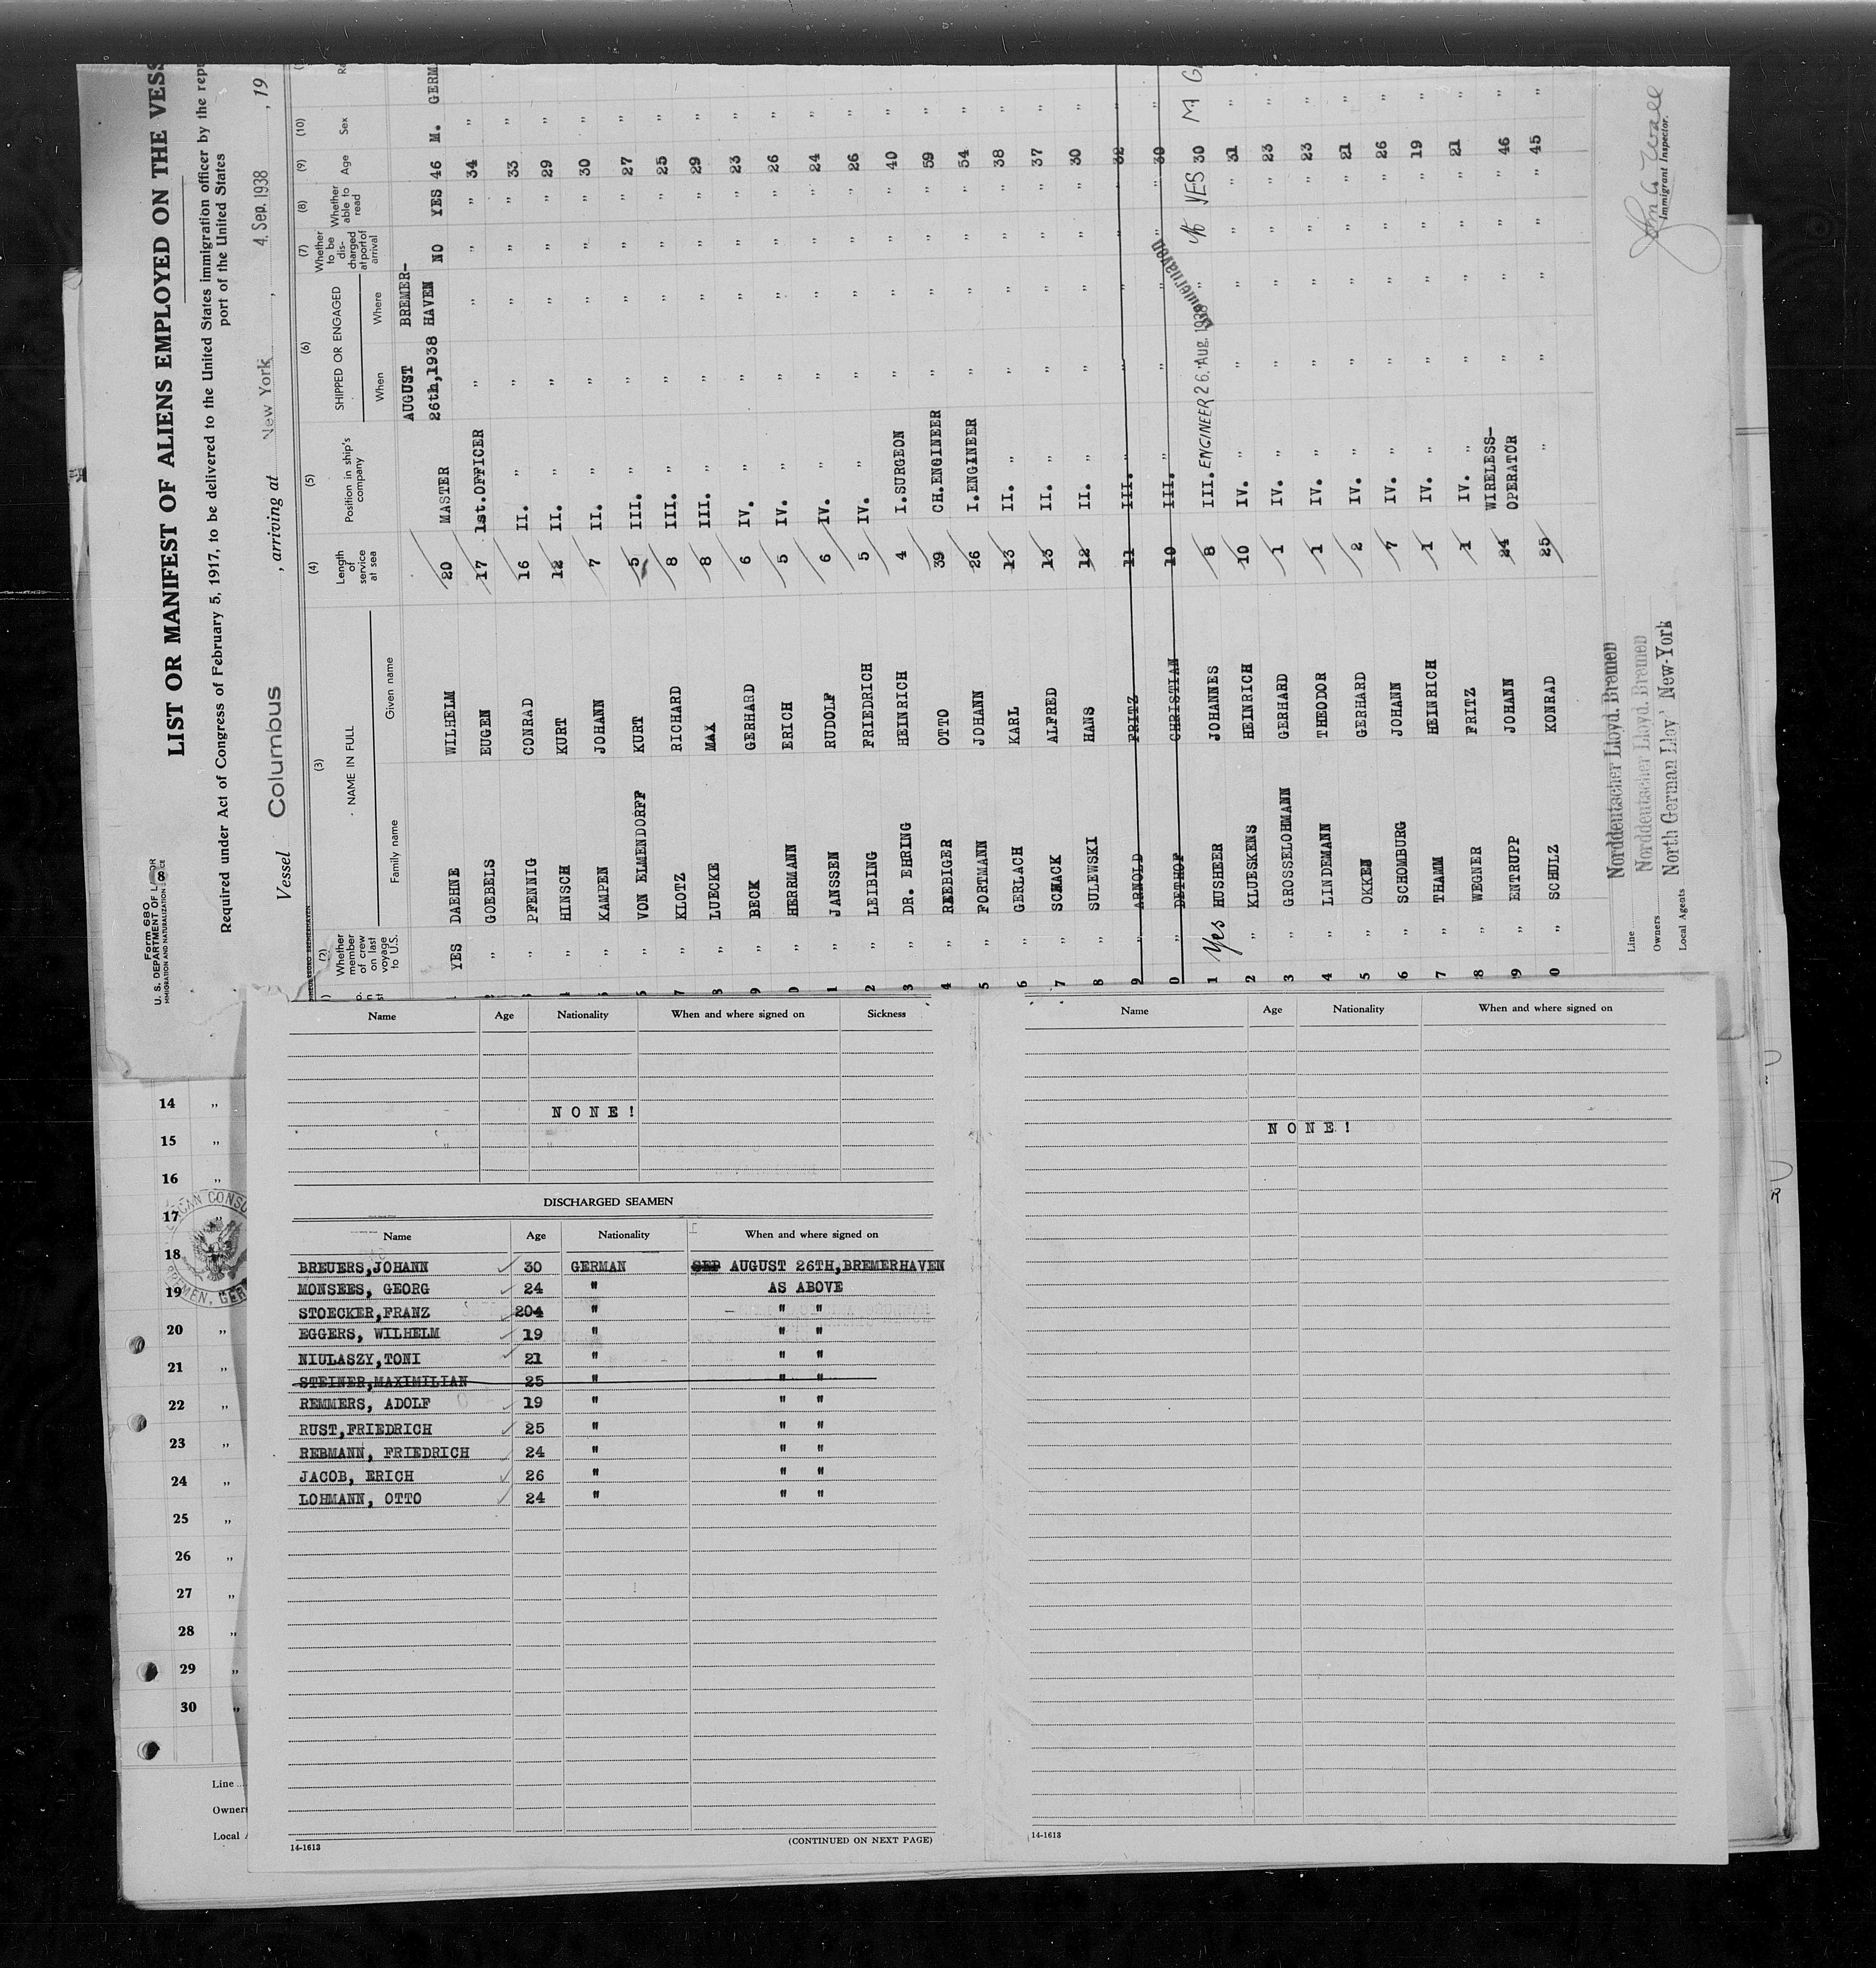 Form 680
U. S. DEPARTMENT OF LABOR
IMMIGRATION AND NATURALIZATION SERVICE
LIST OR MANIFEST OF ALIENS EMPLOYED ON THE VESS
Required under Act of Congress of February 5, 1917, to be delivered to the United States immigration officer by the repr
port of the United States
Vessel Columbus , arriving at New York , 4. Sep. 1938 , 19
(2) (3) (4) (5) (6) (7) (8) (9) (10)
Whether member of crew on last voyage to U.S. NAME IN FULL Family name Given name Length of service at sea Position in ship's company SHIPPED OR ENGAGED When Where Whether to be discharged at port of arrival Whether able to read Age Sex
AUGUST BREMER-
YES DAEHNE WILHELM 20 MASTER 26th,1938 HAVEN NO YES 46 M. GERM
" GOEBELS EUGEN 17 1st.OFFICER " " " " 34 "
" PFENNIG CONRAD 16 II. " " " " " 33 "
" HINSCH KURT 12 II. " " " " " 29 "
" KAMPEN JOHANN 7 II. " " " " " 30 "
" VON ELMENDORFF KURT 5 III. " " " " " 27 "
7 " KLOTZ RICHARD 8 III. " " " " " 25 "
8 " LUECKE MAX 8 III. " " " " " 29 "
9 " BECK GERHARD 6 IV. " " " " " 23 "
0 " HERRMANN ERICH 5 IV. " " " " " 26 "
1 " JANSSEN RUDOLF 6 IV. " " " " " 24 "
2 " LEIBING FRIEDRICH 5 IV. " " " " " 26 "
3 " DR. EHRING HEINRICH 4 I.SURGEON " " " " 40 "
4 " REEBIGER OTTO 39 CH.ENGINEER " " " " 59 "
5 " PORTMANN JOHANN 26 I.ENGINEER " " " " 54 "
6 " GERLACH KARL 13 II. " " " " " 38 "
7 " SCHACK ALFRED 13 II. " " " " " 37 "
8 " SULEWSKI HANS 12 II. " " " " " 30 "
9 " ARNOLD FRITZ 11 III. " " " " " 32 "
0 " DETHOF CHRISTIAN 10 III. " " " " " 30 "
1 Yes HUSHEER JOHANNES 8 III. ENGINEER 26. Aug. 1938 YES 30 M G
2 " KLUESKENS HEINRICH 10 IV. " " " " " 31 "
3 " GROSSELOHMANN GERHARD 1 IV. " " " " " 23 "
4 " LINDEMANN THEODOR 1 IV. " " " " " 23 "
5 " OKKEN GERHARD 2 IV. " " " " " 21 "
6 " SCHOMBURG JOHANN 7 IV. " " " " " 26 "
7 " THAMM HEINRICH 1 IV. " " " " " 19 "
8 " WEGNER FRITZ 1 IV. " " " " " 21 "
9 " ENTRUPP JOHANN 24 WIRELESS-OPERATOR " " " " 46 "
0 " SCHULZ KONRAD 25 " " " " " 45 "
Line Norddeutscher Lloyd. Bremen
Owners Norddeutscher Lloyd. Bremen
Local Agents North German Lloy' New-York
Immigrant Inspector.
Name Age Nationality When and where signed on Sickness
NONE!
DISCHARGED SEAMEN
Name Age Nationality When and where signed on
BREUERS,JOHANN 30 GERMAN SEP AUGUST 26TH,BREMERHAVEN
MONSEES, GEORG 24 " AS ABOVE
STOECKER,FRANZ 204 " " "
EGGERS, WILHELM 19 " " "
NIULASZY,TONI 21 " " "
STEINER,MAXIMILIAN 25 " " "
REMMERS, ADOLF 19 " " "
RUST,FRIEDRICH 25 " " "
REBMANN, FRIEDRICH 24 " " "
JACOB, ERICH 26 " " "
LOHMANN, OTTO 24 " " "
14-1613
(CONTINUED ON NEXT PAGE)
Name Age Nationality When and where signed on
NONE!
14-1613
14 "
15 "
16 "
17 "
18
19 "
20 "
21 "
22 "
23 "
24 "
25 "
26 "
27 "
28 "
29 "
30 "
Line
Owners
Local A